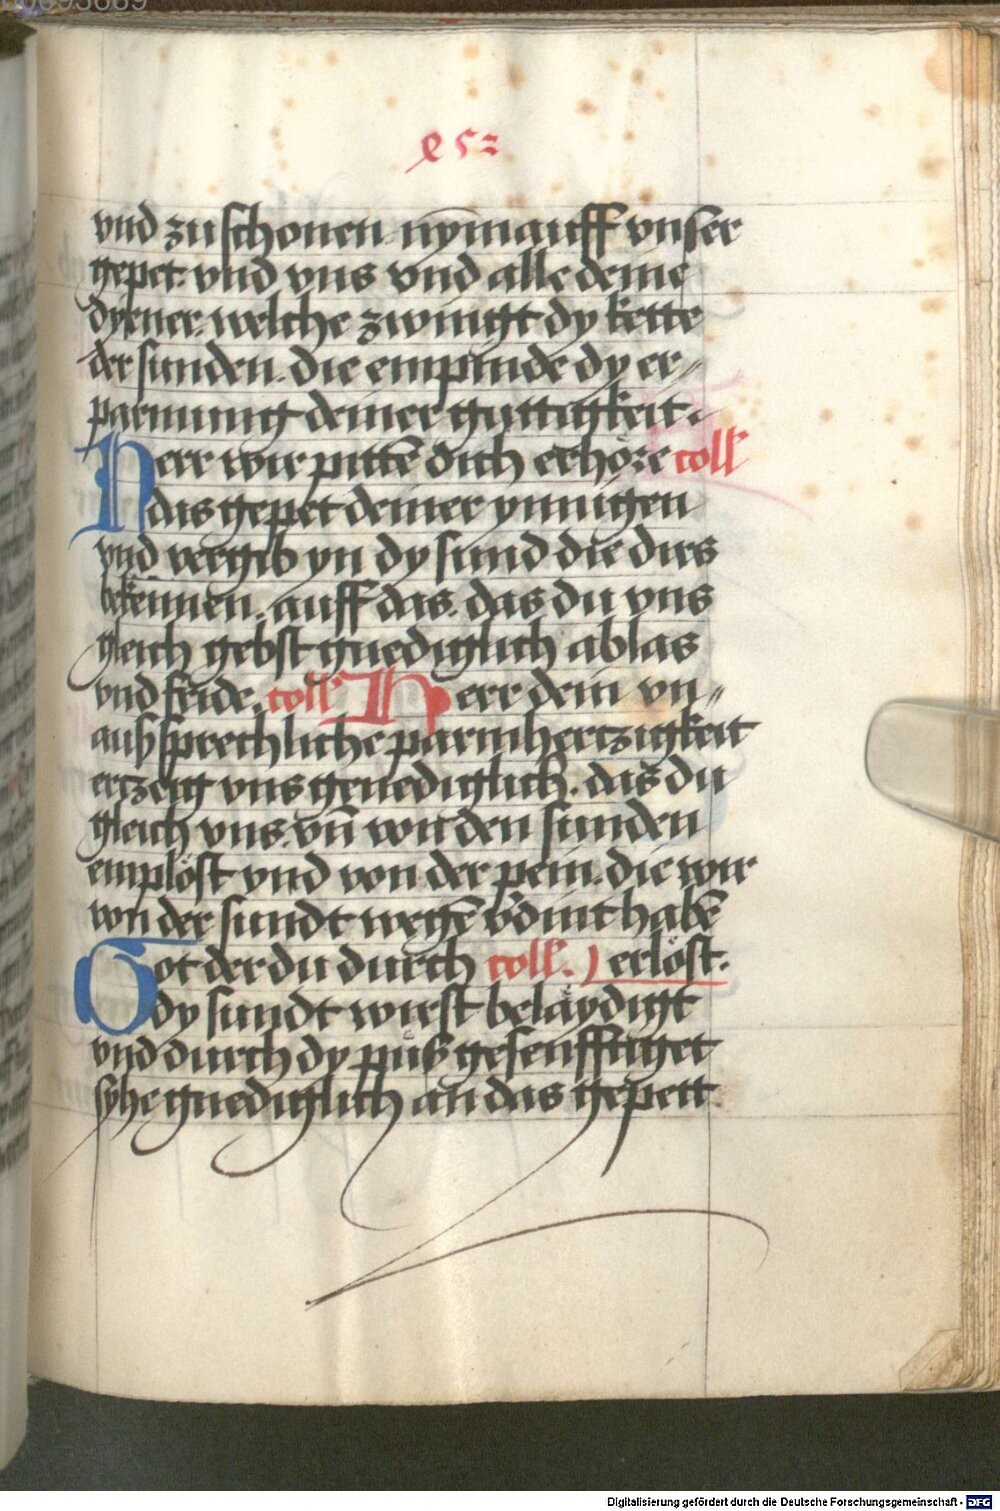 vnd zu schonen nym auff vnser
gepet. vnd vns vnd alle deine
dyener. welche zwingt dy kette
der sunden. die empinde dy er⸗
parmung deiner guttigkeit.
Herr wir pittē dich erhöre coll
das gepet deiner ynnigen
vnd vergib yn dy sund die dirs
bekennen. auff das. das du vns
gleich gebst gnediglich ablas
vnd fride. coll Herr dein vn⸗
aussprechliche parmhertzigkeit
ertzeig vns genediglich. das du
gleich vns. vn̄ von den sunden
emplöst vnd von der pein. die wir
von der sundt wegē v'dint habē
Got der du durch coll. ) erlöst.
dy sundt wirst belaydigt
vnd durch dy puß gesenfftiget
syhe gnediglich an das gepett
Digitalisierung gefördert durch die Deutsche Forschungsgemeinschaft - DFG